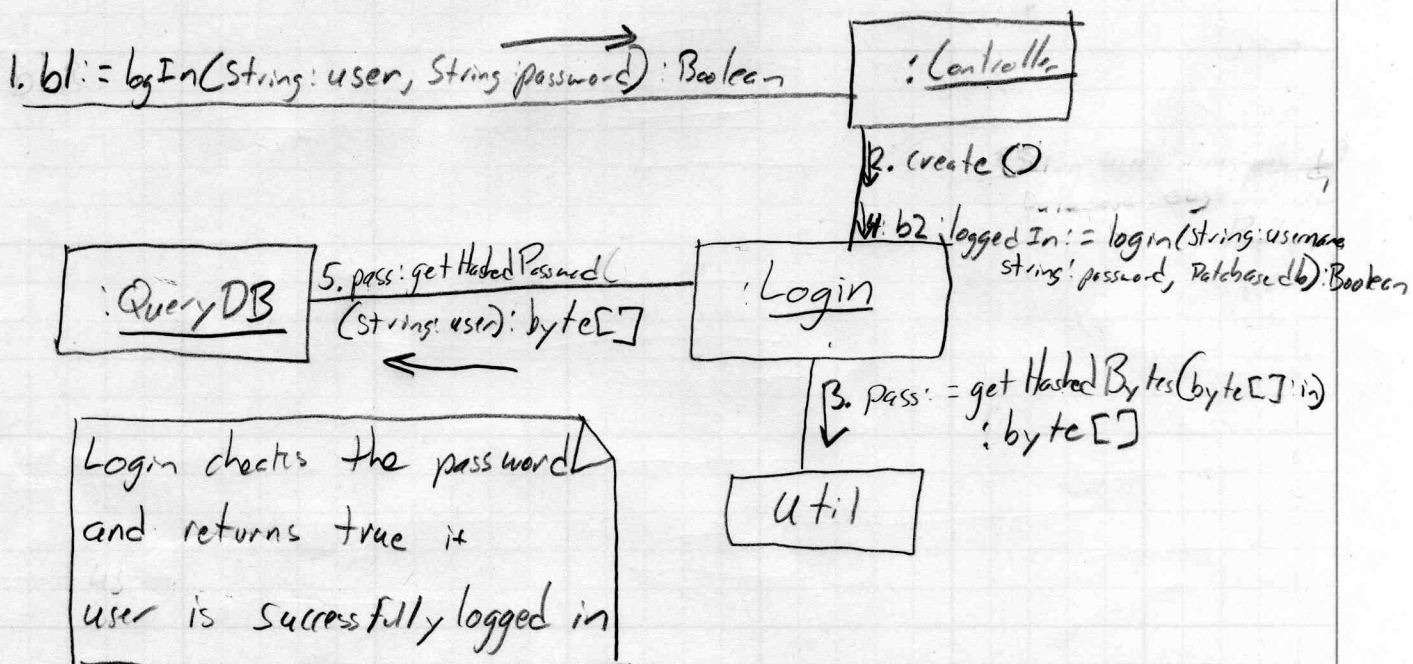 1. b1:= logIn(String: user, String password): Boolean
: Controller
2. create ()
4: b2: loggedIn:= login(string:username
string: password, Database db): Boolean
: QueryDB
5. pass: getHashedPassword(
(string: user): byte[]
: Login
3. pass:= getHashedBytes(byte[]: in)
: byte[]
Util
Login checks the password
and returns true if
user is successfully logged in